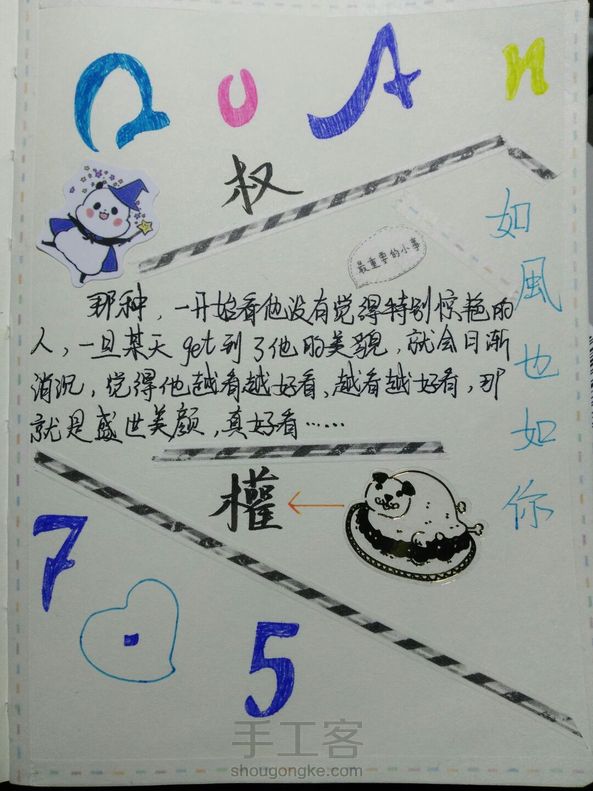 QUAN
权
最重要的小事
如風也如你
那种，一开始看他没有觉得特别惊艳的
人，一旦某天get到了他的美貌，就会日渐
消沉，觉得他越看越好看，越看越好看，那
就是盛世美颜，真好看……
權
7
5
手工客
shougongke.com